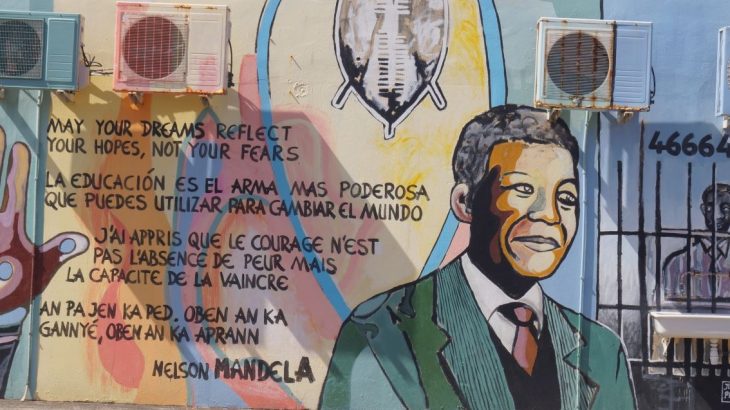 MAY YOUR DREAMS REFLECT
YOUR HOPES, NOT YOUR FEARS
LA EDUCACIÓN ES EL ARMA MAS PODEROSA
QUE PUEDES UTILIZAR PARA CAMBIAR EL MUNDO
J'AI APPRIS QUE LE COURAGE N'EST
PAS L'ABSENCE DE PEUR MAIS
LA CAPACITE DE LA VAINCRE
AN PA JEN KA PED. OBEN AN KA
GANNYÉ, OBEN AN KA APRANN
NELSON MANDELA
46664